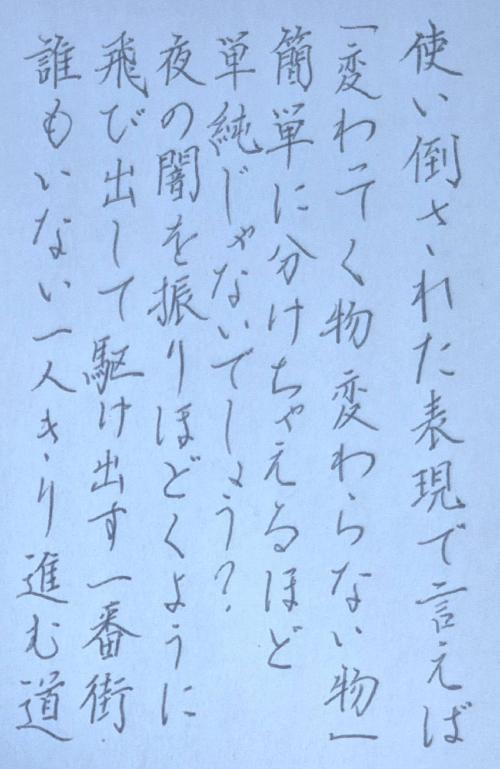 使い倒された表現で言えば
「変わってく物 変わらない物」
簡単に分けちゃえるほど
単純じゃないでしょう?
夜の闇を振りほどくように
飛び出して駆け出す一番街
誰もいない一人きり進む道